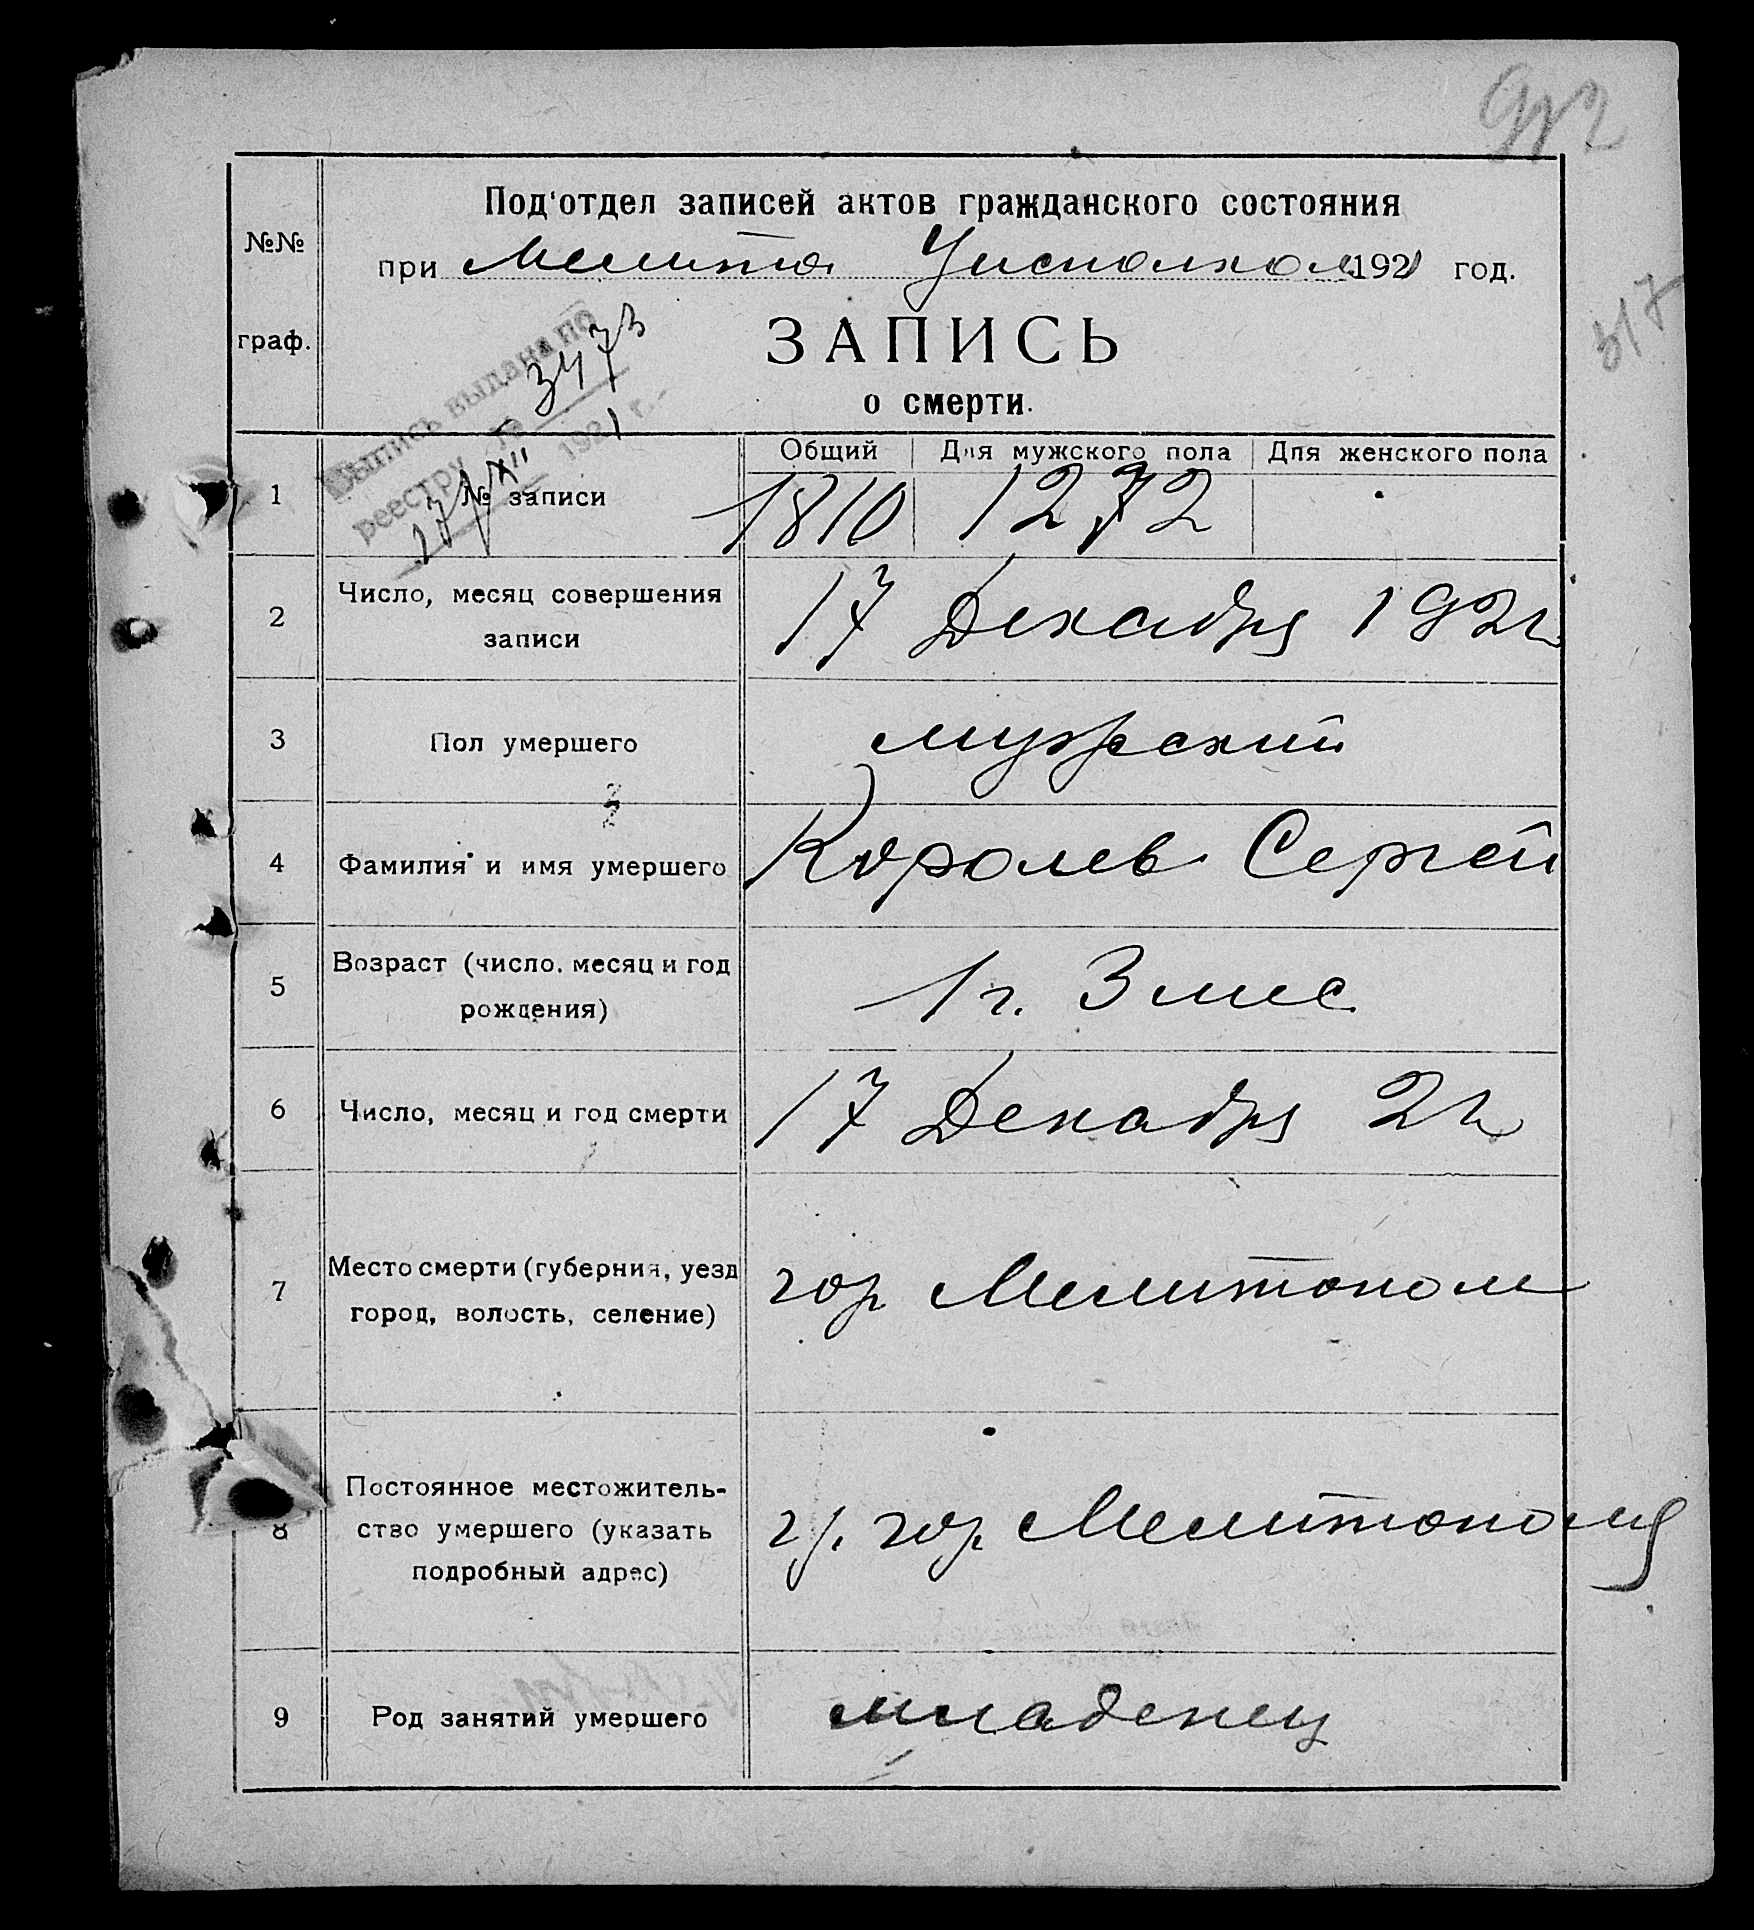 912
Под'отдел записей актов гражданского состояния
№№
при Мелито Уисполком 1921 год.
317
граф.
ЗАПИСЬ
о смерти.
Выпись выдана по
реестру № 3473
17/XII 1921 г.
Общий Для мужского пола Для женского пола
1 № записи 1810 1272
2 Число, месяц совершения
записи
17 Декабря 1921
3 Пол умершего мужский
4 Фамилия и имя умершего Королев Сергей
5 Возраст (число, месяц и год
рождения)
1 г. 3 мес
6 Число, месяц и год смерти 17 Декабря 21
7 Место смерти (губерния, уезд
город, волость, селение)
гор Мелитополь
8 Постоянное местожитель-
ство умершего (указать
подробный адрес)
гр. гор. Мелитополя
9 Род занятий умершего младенец